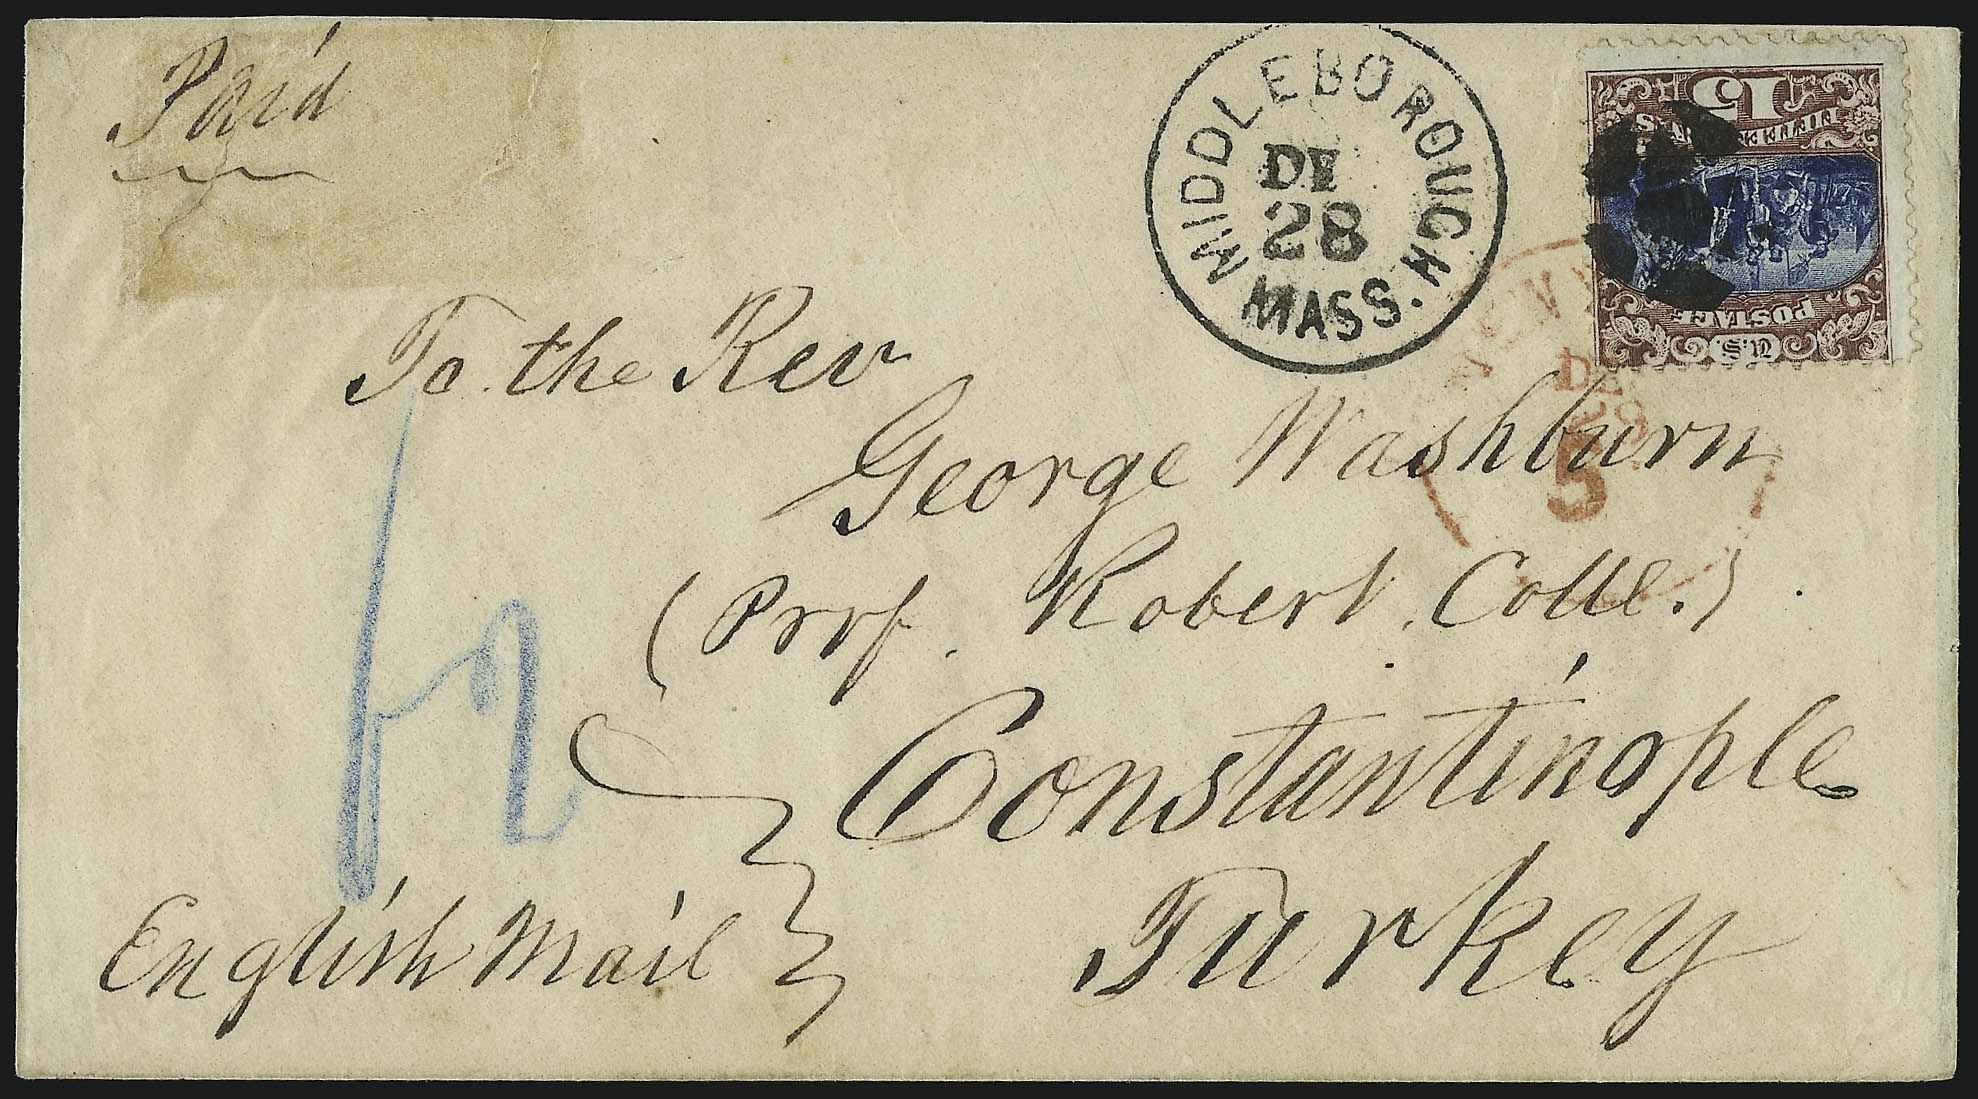 Paid
MIDDLEBOROUGH
DE
28
MASS.
15
U.S.
POSTAGE
NEW
DE
29
5
To the Rev
George Washburn
(Prof. Robert Colle.)
Constantinople
Turkey
English Mail